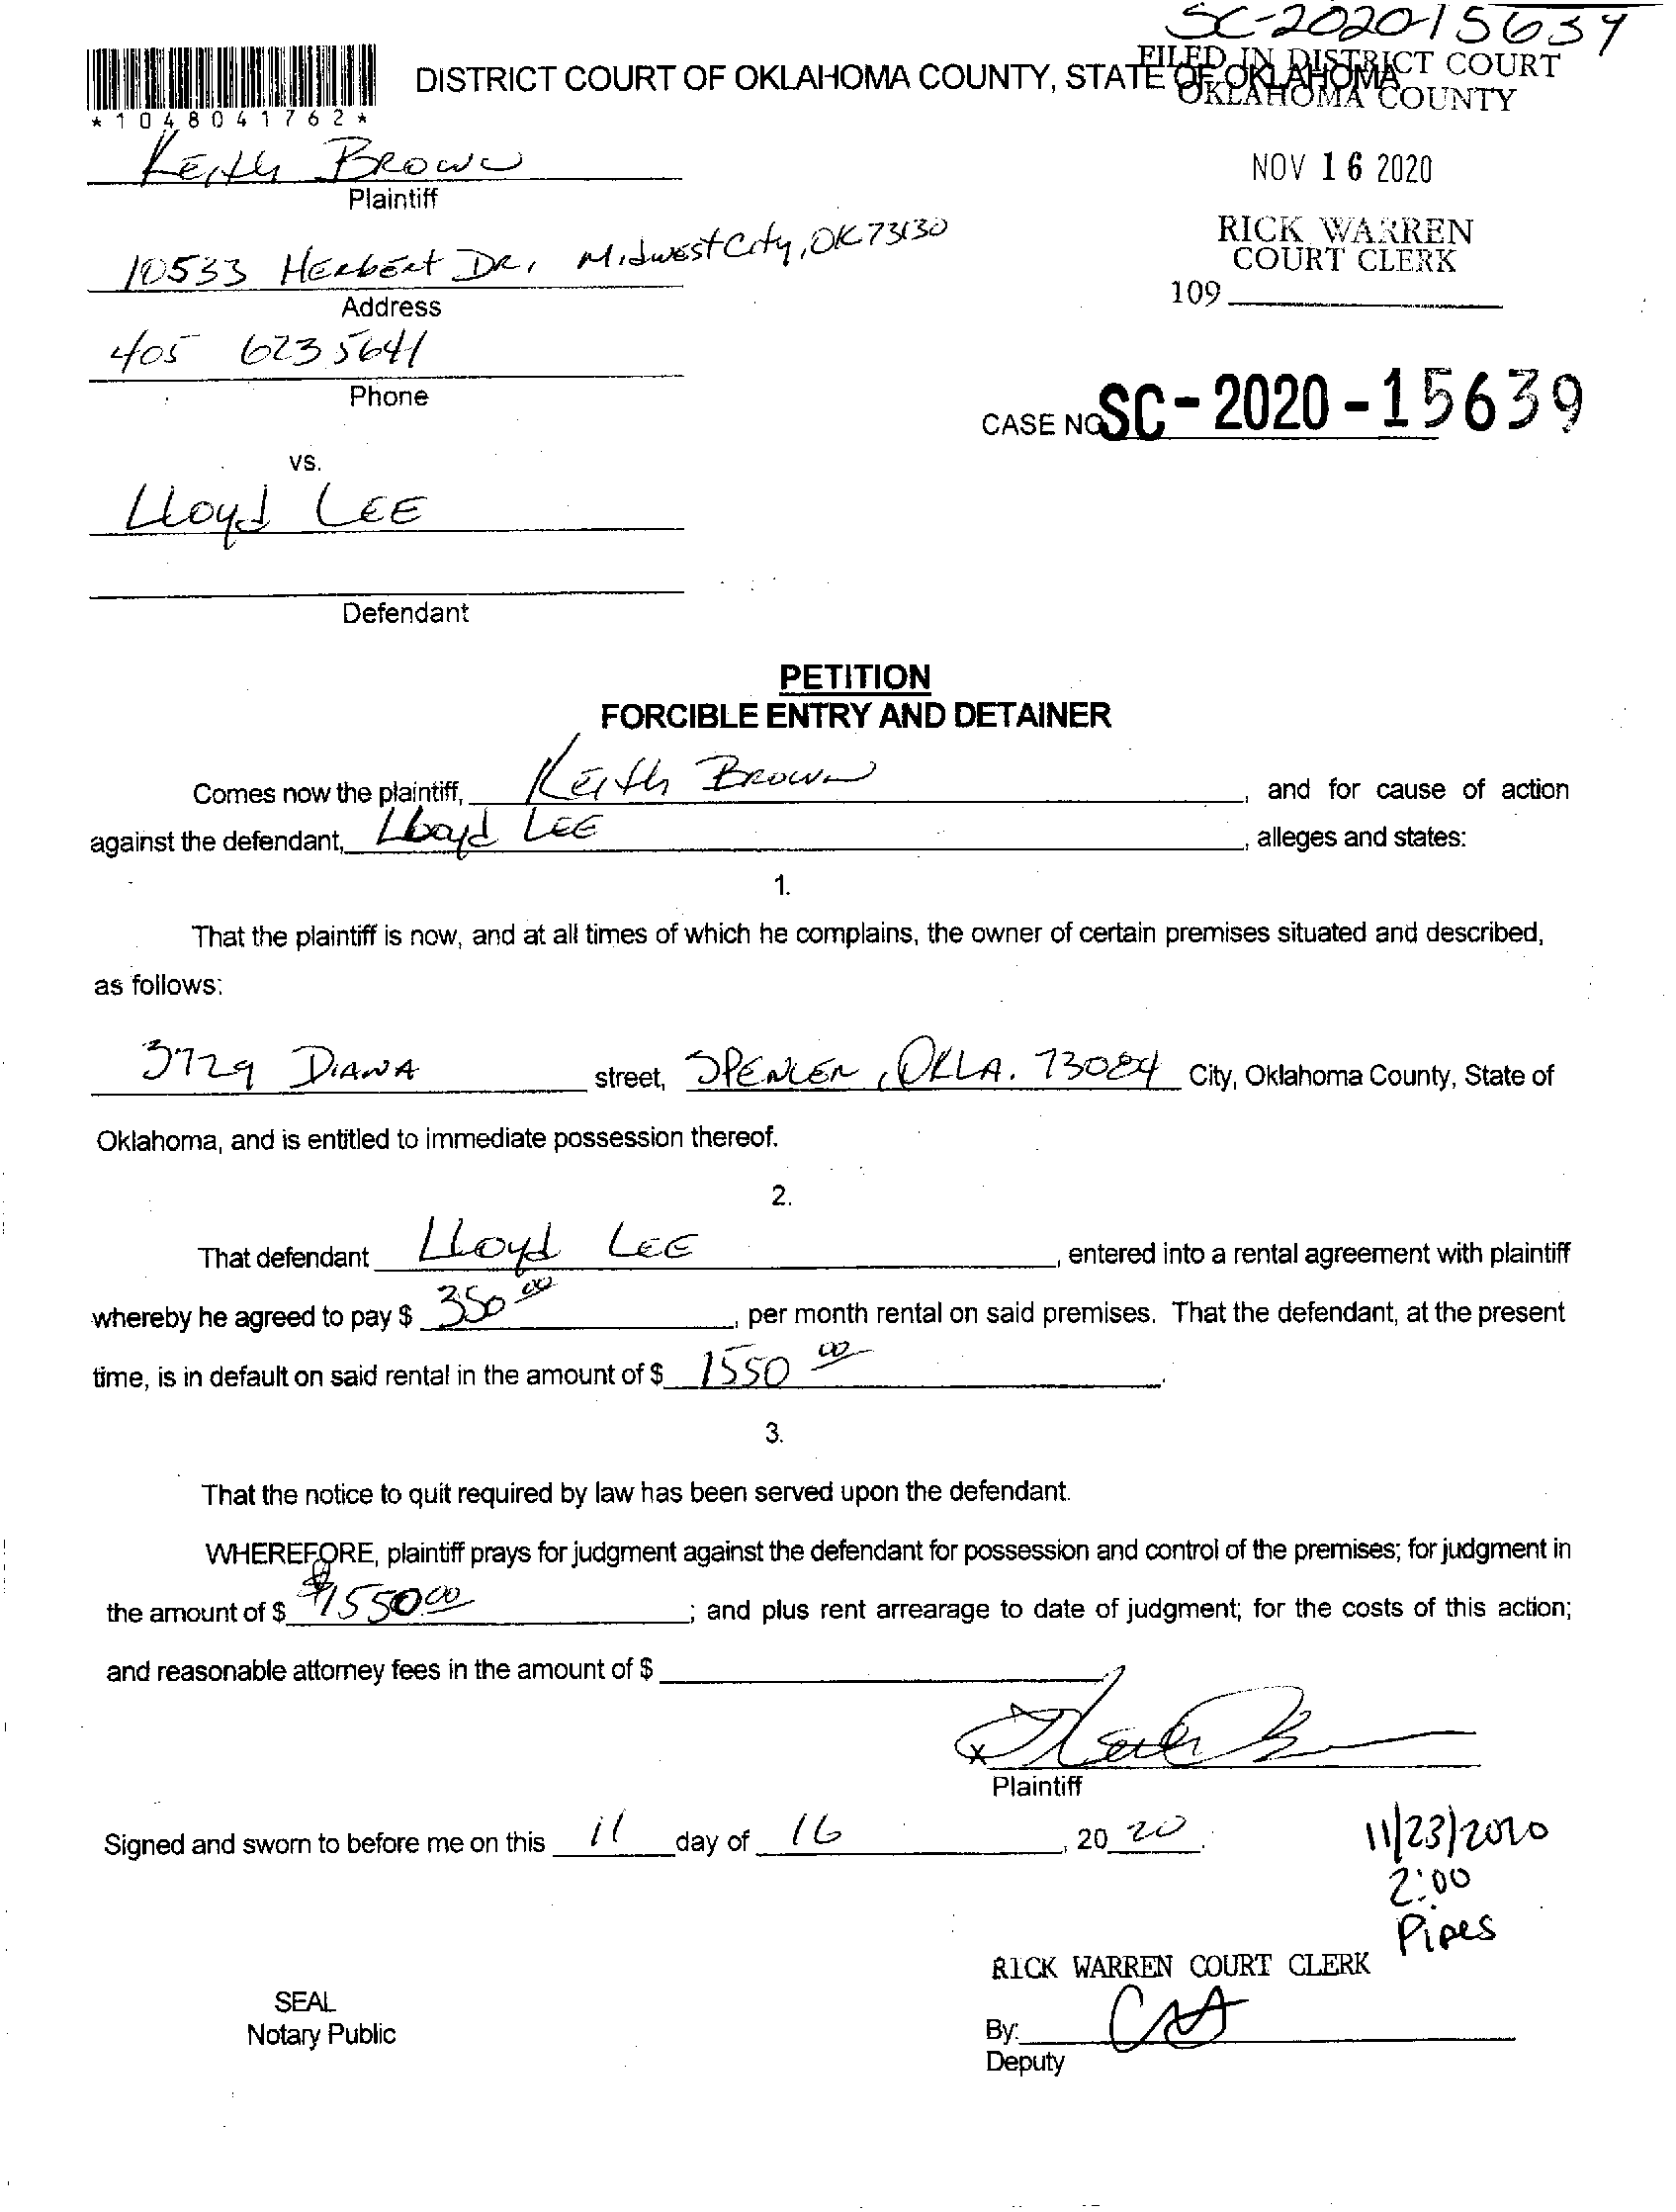 SC-2020-15639
DISTRICT COURT OF OKLAHOMA COUNTY, STATE OF OKLAHOMA
FILED IN DISTRICT COURT
OKLAHOMA COUNTY
*1048041762*
Keith Brown
NOV 16 2020
Plaintiff
RICK WARREN
COURT CLERK
10533 Herbert Dr, Midwest City, OK 73130
109
Address
405 623 5641
Phone
CASE NO SC-2020-15639
vs.
Lloyd Lee
Defendant
PETITION
FORCIBLE ENTRY AND DETAINER
Comes now the plaintiff, Keith Brown, and for cause of action
against the defendant, Lloyd Lee, alleges and states:
1.
That the plaintiff is now, and at all times of which he complains, the owner of certain premises situated and described,
as follows:
3729 Diana street, Spencer, Okla. 73084 City, Oklahoma County, State of
Oklahoma, and is entitled to immediate possession thereof.
2.
That defendant Lloyd Lee, entered into a rental agreement with plaintiff
whereby he agreed to pay $ 350 00, per month rental on said premises. That the defendant, at the present
time, is in default on said rental in the amount of $ 1550 00.
3.
That the notice to quit required by law has been served upon the defendant.
WHEREFORE, plaintiff prays for judgment against the defendant for possession and control of the premises; for judgment in
the amount of $ $1550.00; and plus rent arrearage to date of judgment; for the costs of this action;
and reasonable attorney fees in the amount of $
x Keith B
Plaintiff
Signed and sworn to before me on this 11 day of 16, 20 20.
11/23/2020
2:00
Pipes
RICK WARREN COURT CLERK
SEAL
Notary Public
By:
Deputy